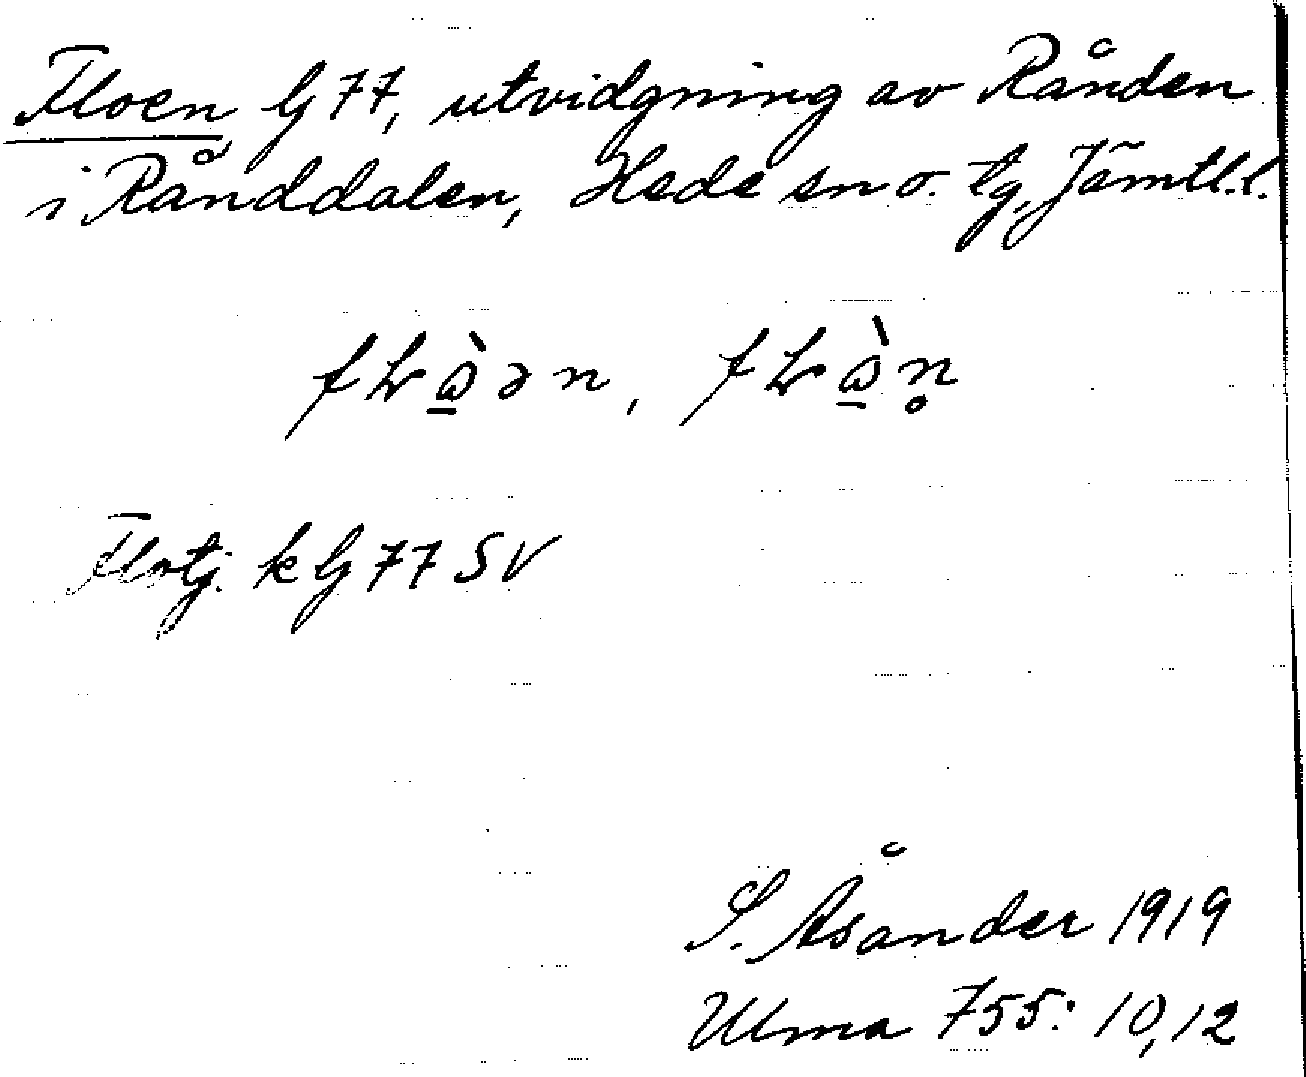 Floen bl 77, utvidgning av Rånden
i Rånddalen, Hede sn o. tg, Jämtl. l.
Flotj. k bl 77 SV
S. Åsander 1919
Ulma 755: 10, 12